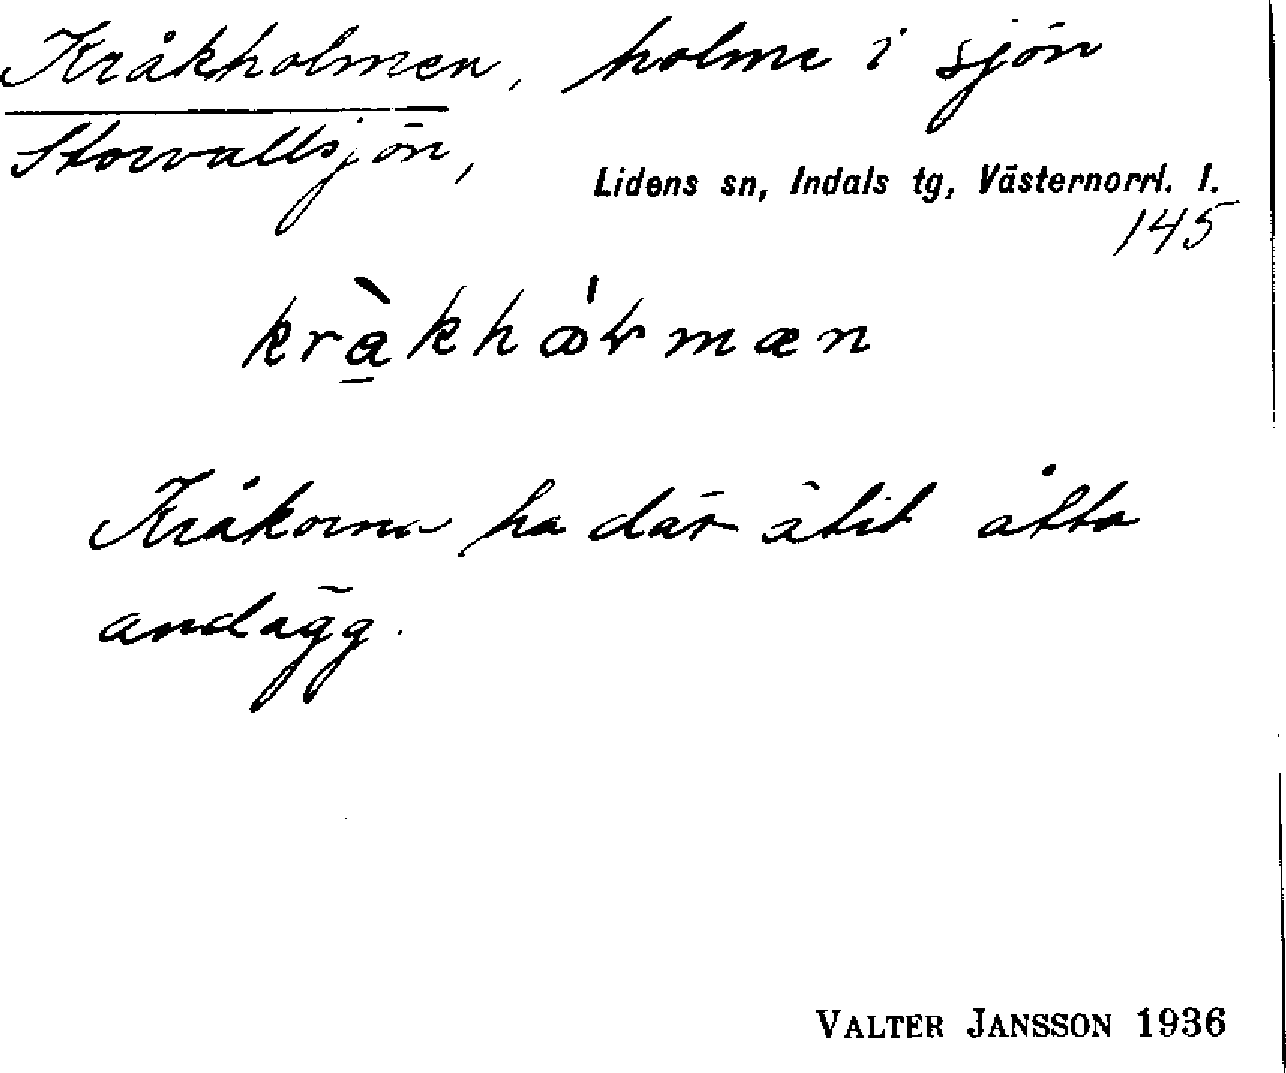 Kråkholmen, holme i sjön
Storvallsjön,
Lidens sn, Indals tg, Västernorrl. l.
145
Kråkorna ha där ätit åtta
andägg.
VALTER JANSSON 1936